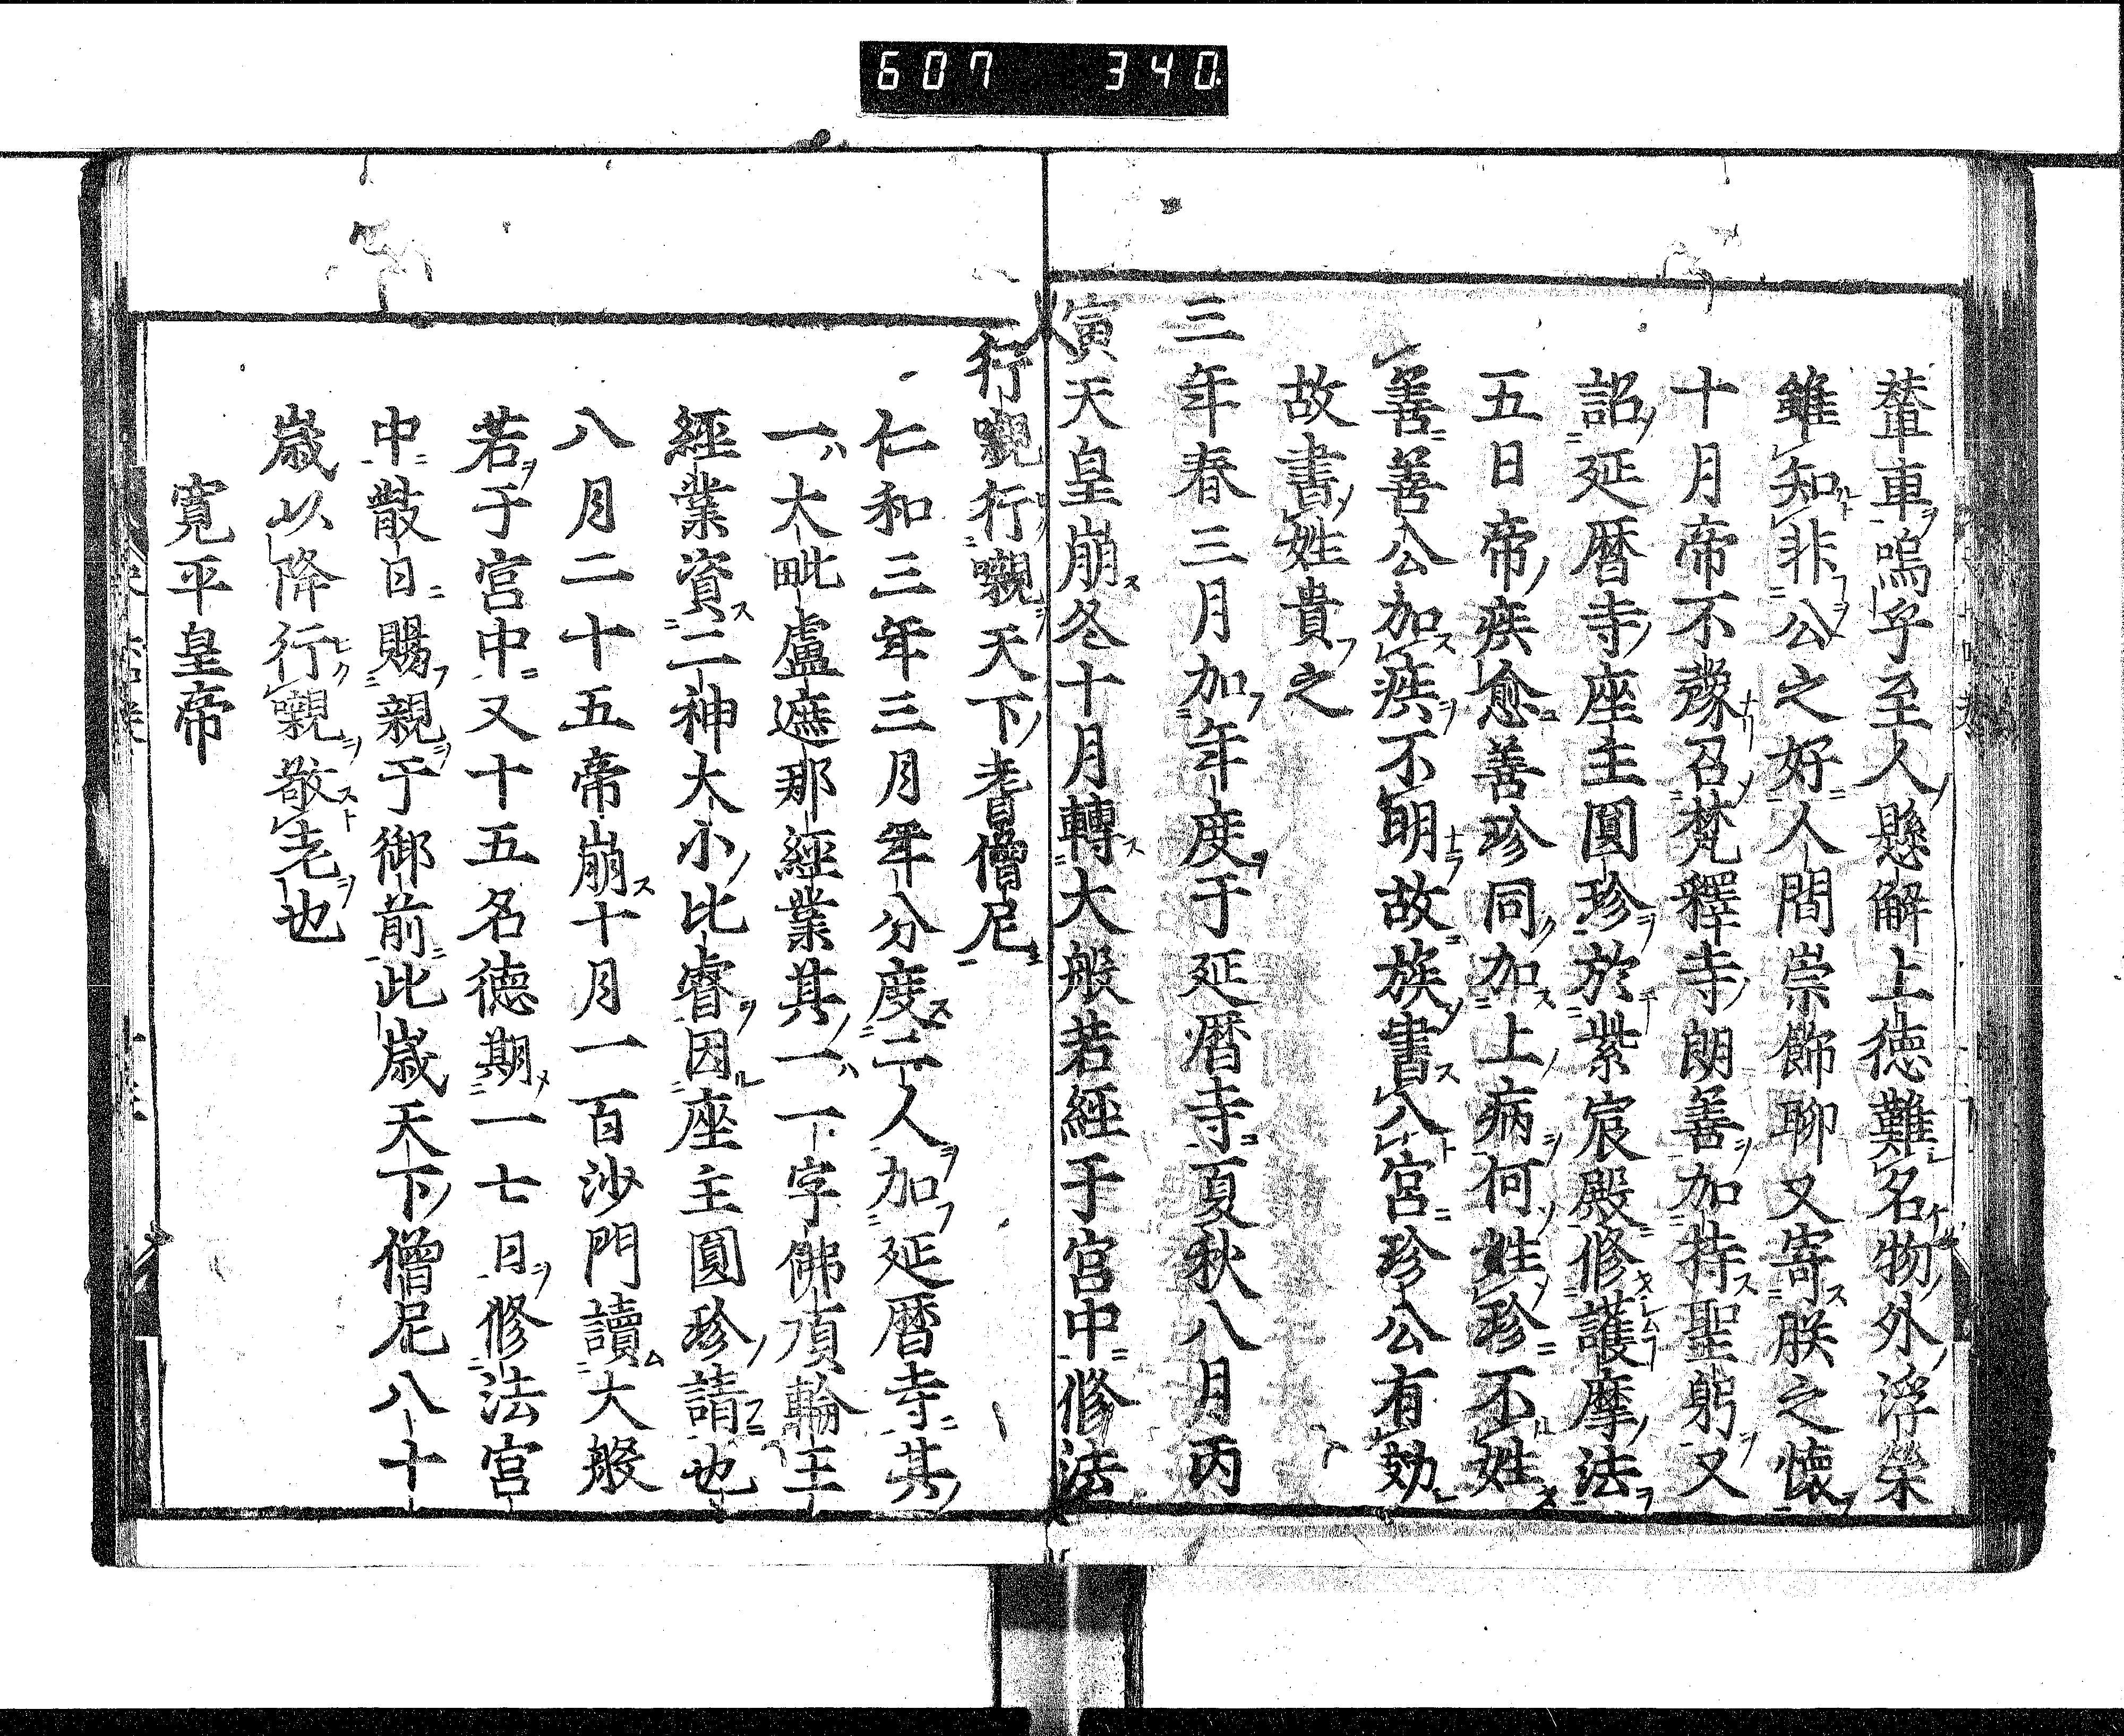 607 340
輦車嗚乎至人懸解上徳難名物外浮榮
雖知非公之好人間崇飾聊又寄朕之懷
十月帝不豫召梵釋寺朗善加持聖躬又
詔延暦寺座主圓珍於紫宸殿修護摩法
五日帝疾愈善珍同加上病何姓珍不姓
善善公加疾不明故族書八宮珍公有効
故書姓貴之
三年春三月加年度于延暦寺夏秋八月丙
寅天皇崩冬十月轉大般若經于宮中修法
行嚫行嚫天下耆僧尼
仁和三年三月年分度二人加延暦寺其
一大毗盧遮那經業其一一字佛頂輪王
經業資二神大小比睿因座主圓珍請也
八月二十五帝崩十月一百沙門讀大般
若于宮中又十五名德期一七日修法宮
中散日賜親于御前此歳天下僧尼八十
歳以降行嚫敬老也
寛平皇帝